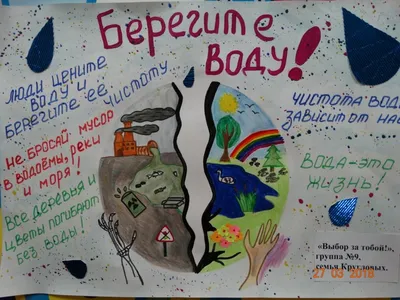 Берегите
воду!
Люди цените
воду и
берегите её,
чистоту.
Не бросай мусор
в водоёмы, реки
и моря!
Все деревья и
цветы погибают
без воды!
Чистота воды
зависит от нас
Вода-это
жизнь!
«Выбор за тобой!»,
группа №9,
семья Кругловых.
27 03 2018